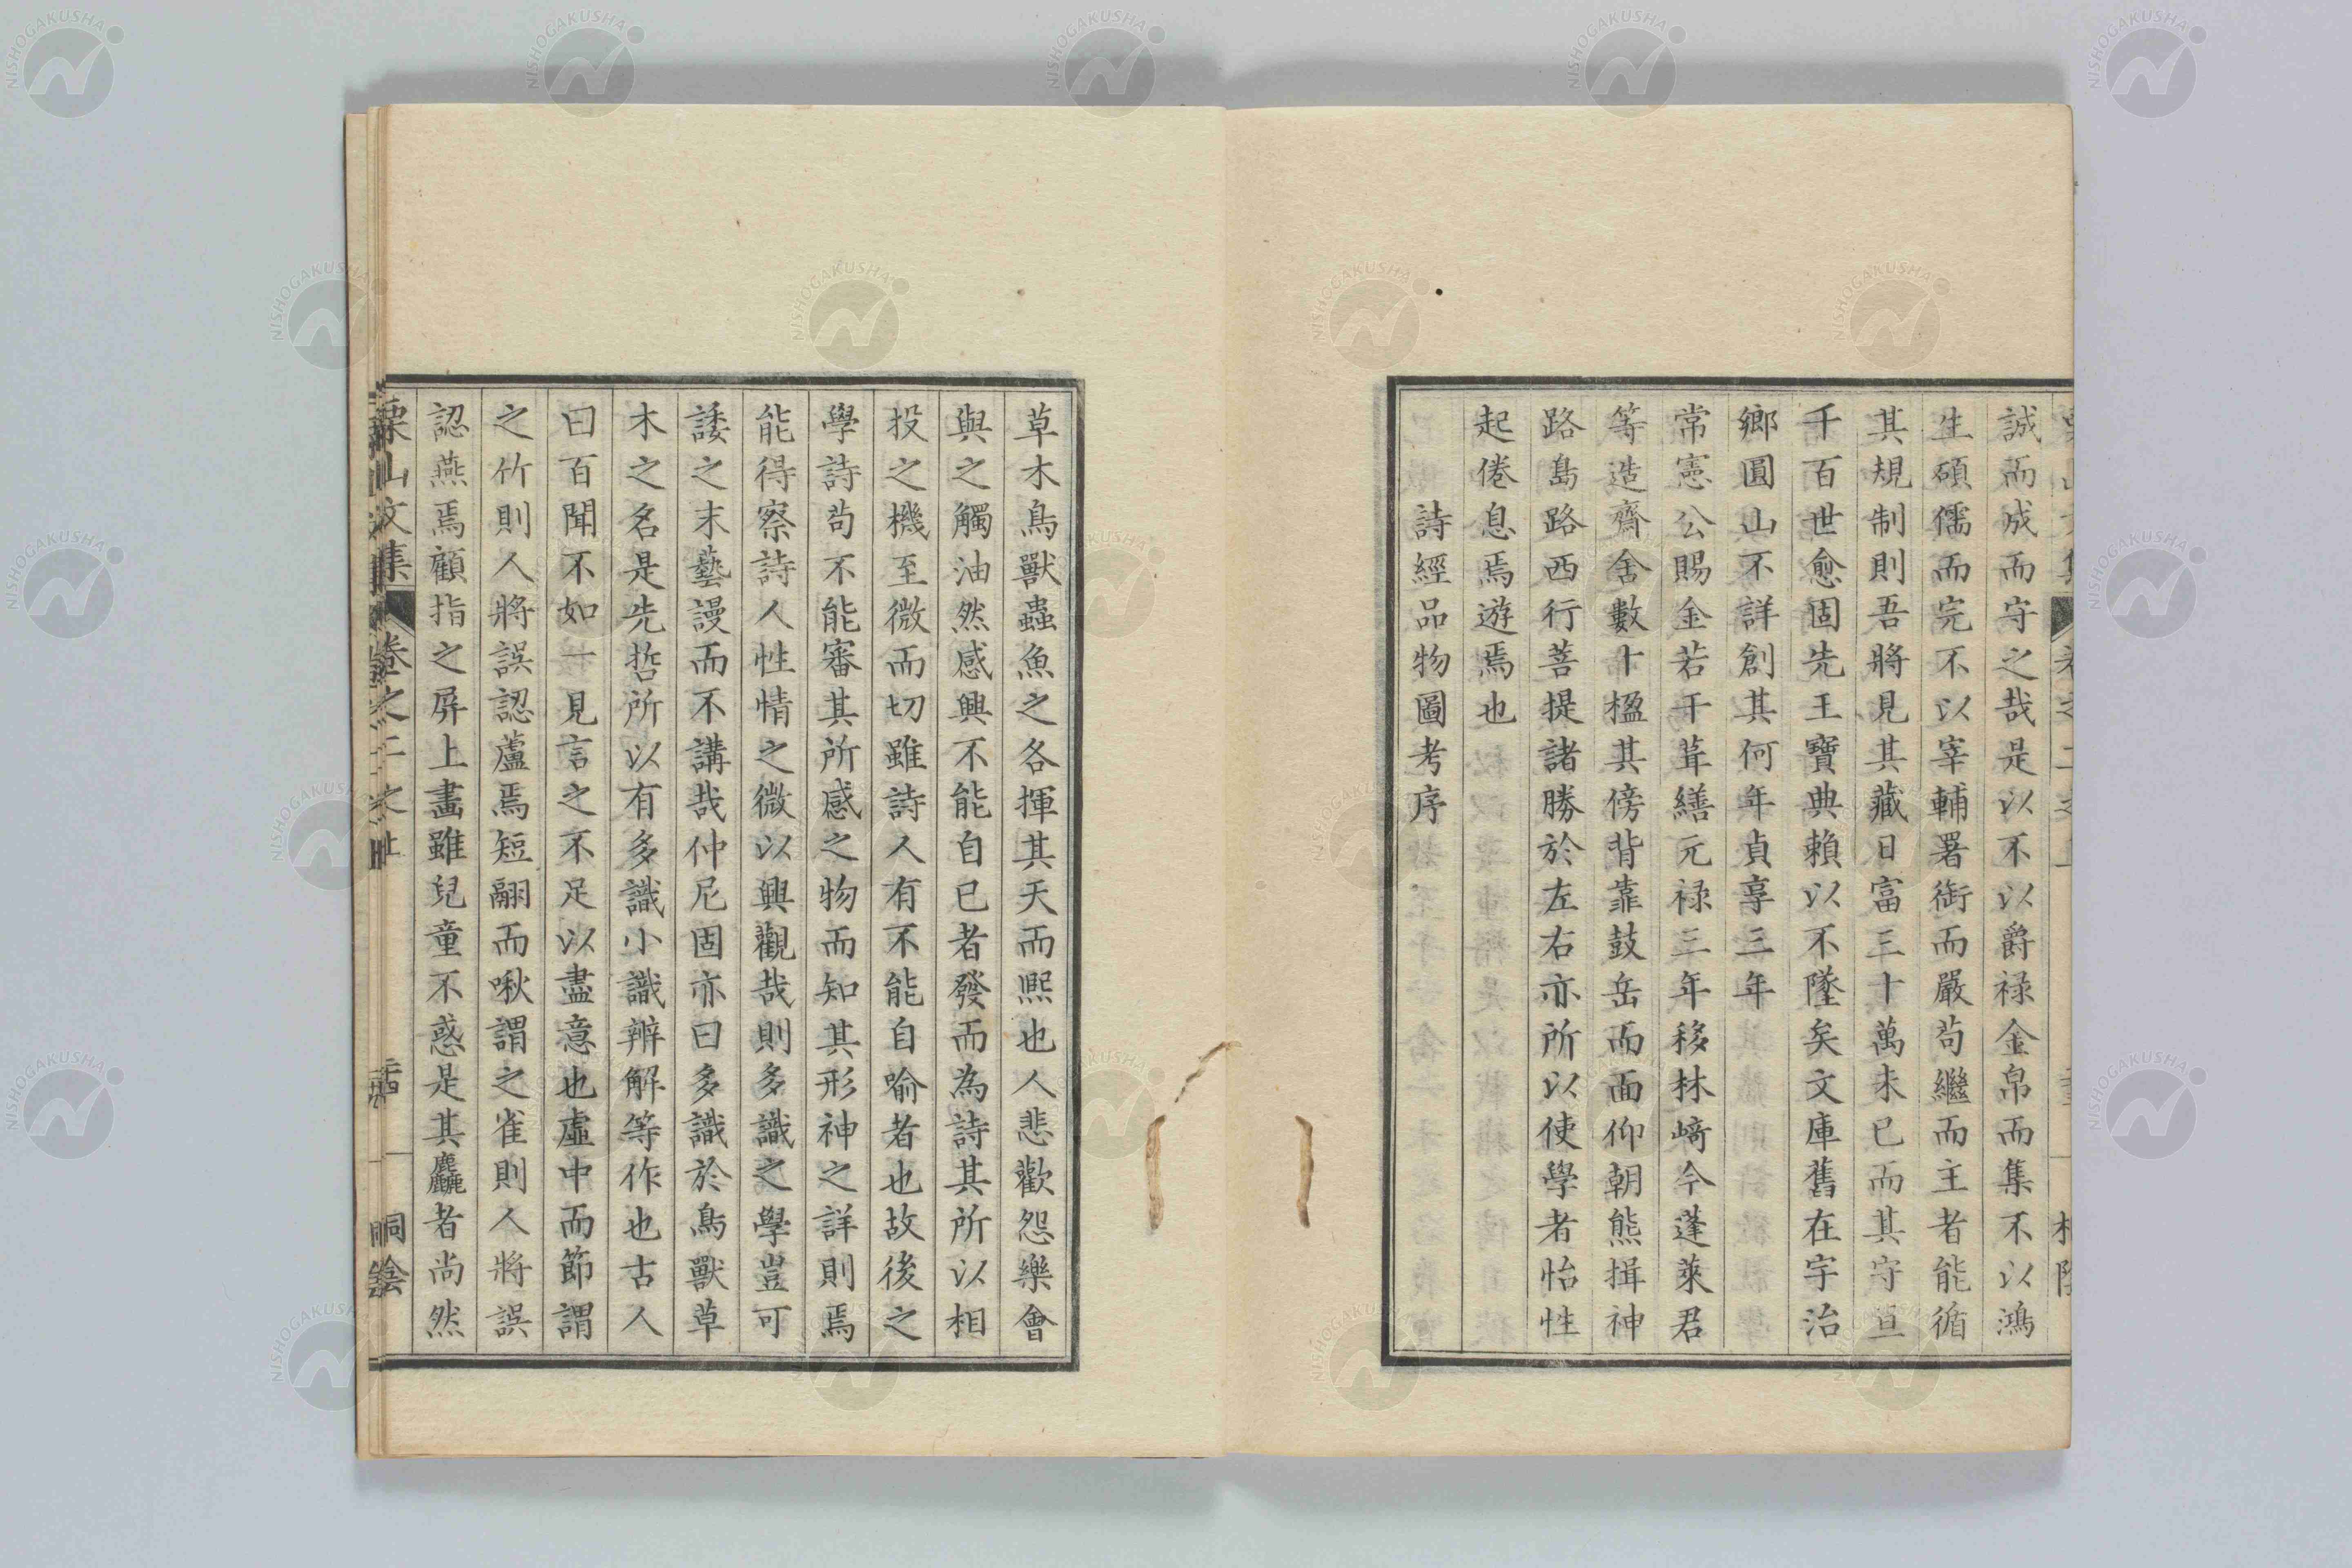 誠而成而守之哉是以不以爵禄金帛而集不以鴻
生碩儒而完不以宰輔署銜而嚴苟繼而主者能循
其規制則吾將見其藏日富三十萬未已而其守亘
千百世愈固先王寶典賴以不墜矣文庫舊在宇治
鄉圓山不詳創其何年貞享三年
常憲公賜金若干葺繕元禄三年移林﨑今蓬萊君
等造齋舍數十楹其傍背靠鼓岳而面仰朝熊揖神
路島路西行菩提諸勝於左右亦所以使學者怡性
起倦息焉遊焉也
詩經品物圖考序
草木鳥獸蟲魚之各揮其天而熈也人悲歡怨樂會
與之觸油然感興不能自已者發而為詩其所以相
投之機至微而切雖詩人有不能自喻者也故後之
學詩苟不能審其所感之物而知其形神之詳則焉
能得察詩人性情之微以興觀哉則多識之學豈可
諉之末藝謾而不講哉仲尼固亦曰多識於鳥獸草
木之名是先哲所以有多識小識辨解等作也古人
曰百聞不如一見言之不足以盡意也虛中而節謂
之竹則人將誤認蘆焉短翮而啾謂之雀則人將誤
認燕焉顧指之屏上畫雖兒童不惑是其麤者尚然
栗山文集 卷之二之上 二十四 桐陰
NISHOGAKUSHA